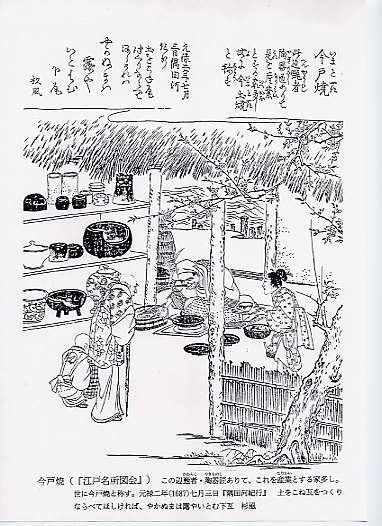 今戸焼
世に今戸焼
と称す
元禄二年七月
三日隅田河
紀行
やかぬまは
露や
いとはむ
下瓦
杉風
今戸焼(『江戸名所図会』) この辺甄者・陶器匠ありて、これを産業とする家多し。
世に今戸焼と称す。元禄二年(1687)七月三日『隅田河紀行』 土をこね瓦をつくり
ならべてほしければ、やかぬまは露やいとむ下瓦 杉風